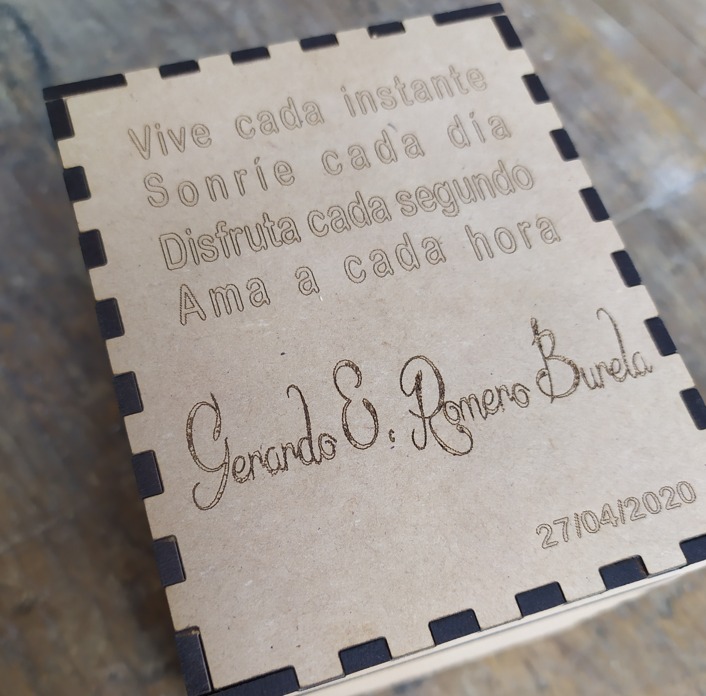 Vive cada instante
Sonríe cada día
Disfruta cada segundo
Ama a cada hora
Gerardo E. Romero Burela
27/04/2020